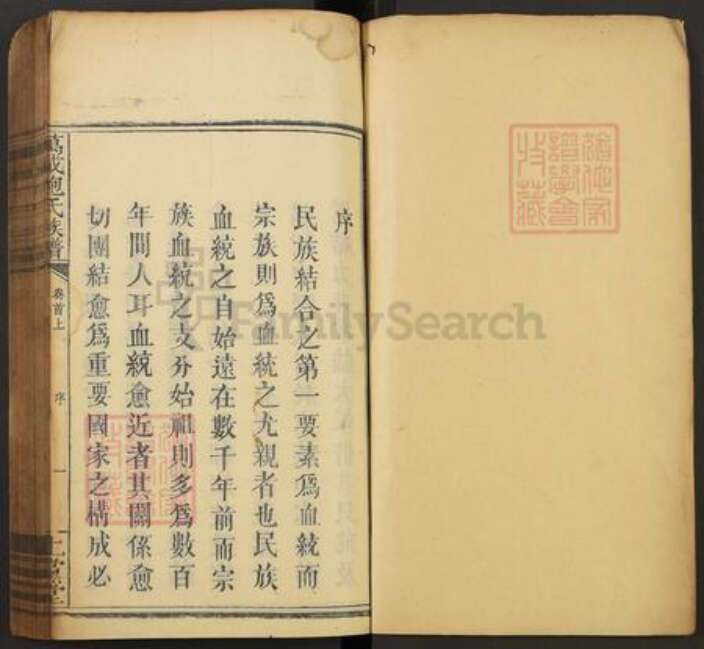 序
民族結合之第一要素爲血統而
宗族則爲血統之尤親者也民族
血統之自始遠在數千年前而宗
族血統之支分始祖則多爲數百
年間人耳血統愈近者其關係愈
切團結愈爲重要國家之構成必
萬載鮑氏族譜
卷首上
序
一
FamilySearch